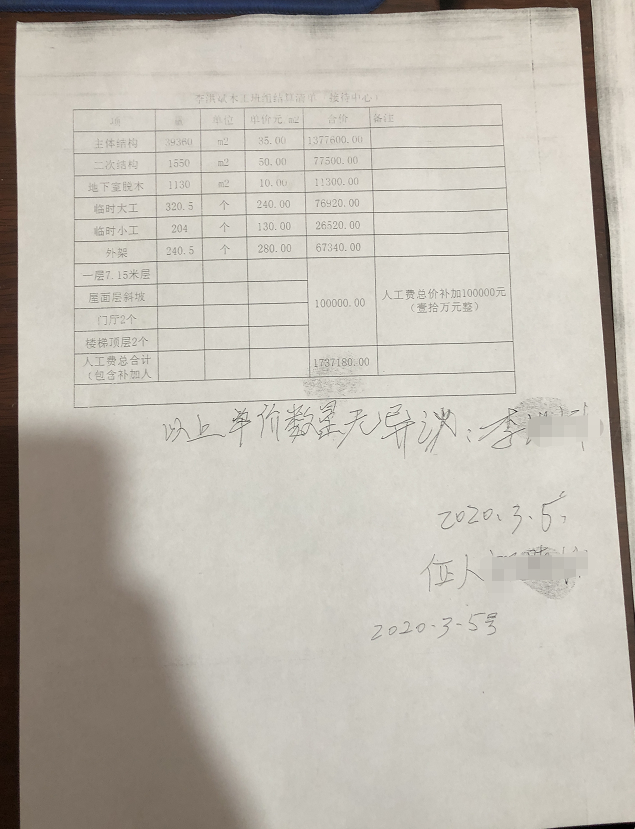 李洪斌木工班组结算清单（接待中心）
项 量 单位 单价元 m2 合价 备注
主体结构 39360 m2 35.00 1377600.00
二次结构 1550 m2 50.00 77500.00
地下室胶木 1130 m2 10.00 11300.00
临时大工 320.5 个 240.00 76920.00
临时小工 204 个 130.00 26520.00
外架 240.5 个 280.00 67340.00
一层7.15米层
屋面层斜坡
门厅2个
楼梯顶层2个
100000.00 人工费总价补加100000元
（壹拾万元整）
人工费总合计
（包含补加人 1737180.00
以上单价数量无异议：李
2020.3.5.
证人
2020-3-5号